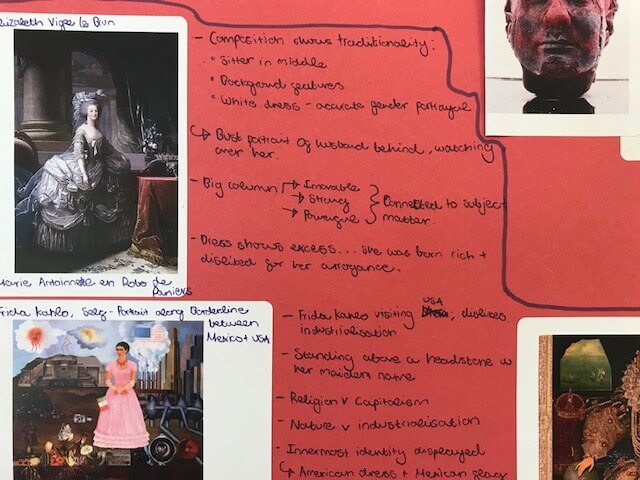 Elizabeth Vigee Le Brun
- Composition shows traditionality:
° Sitter in middle
° Background features
° White dress - accurate gender portrayal
↳ Bust portrait of husband behind, watching
over her.
- Big column → Immovable
→ Strong
→ Powerful
} Connected to subject
matter.
- Dress shows excess... She was born rich +
disliked for her arrogance.
Marie Antoinnete en Robe de
Paniers
Frida Kahlo, Self-Portrait along Borderline
between
Mexico + USA
- Frida Kahlo visiting USA, dislikes
industrialisation
- Standing above a headstone w
her maiden name
- Religion v Capitalism
- Nature v industrialisation
- Innermost identity displayed
↳ American dress + Mexican flag